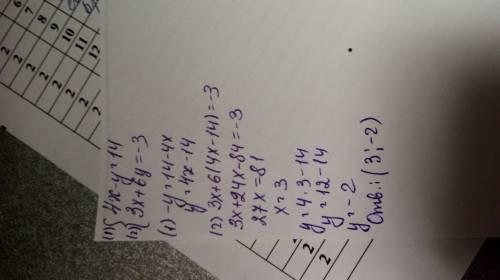 (1) { 4x-y=14
(2) { 3x+6y=-3
(1) -y=14-4x
y=4x-14
(2) 3x+6(4x-14)=-3
3x+24x-84=-3
27x=81
x=3
y=4·3-14
y=12-14
y=-2
Отв.: (3;-2)
6
7 2
8 2
9 2
10 2
11 2
12 2
2
2
2